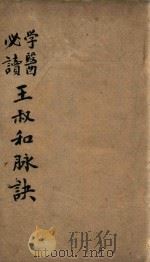 学醫
必讀
王叔和脉訣